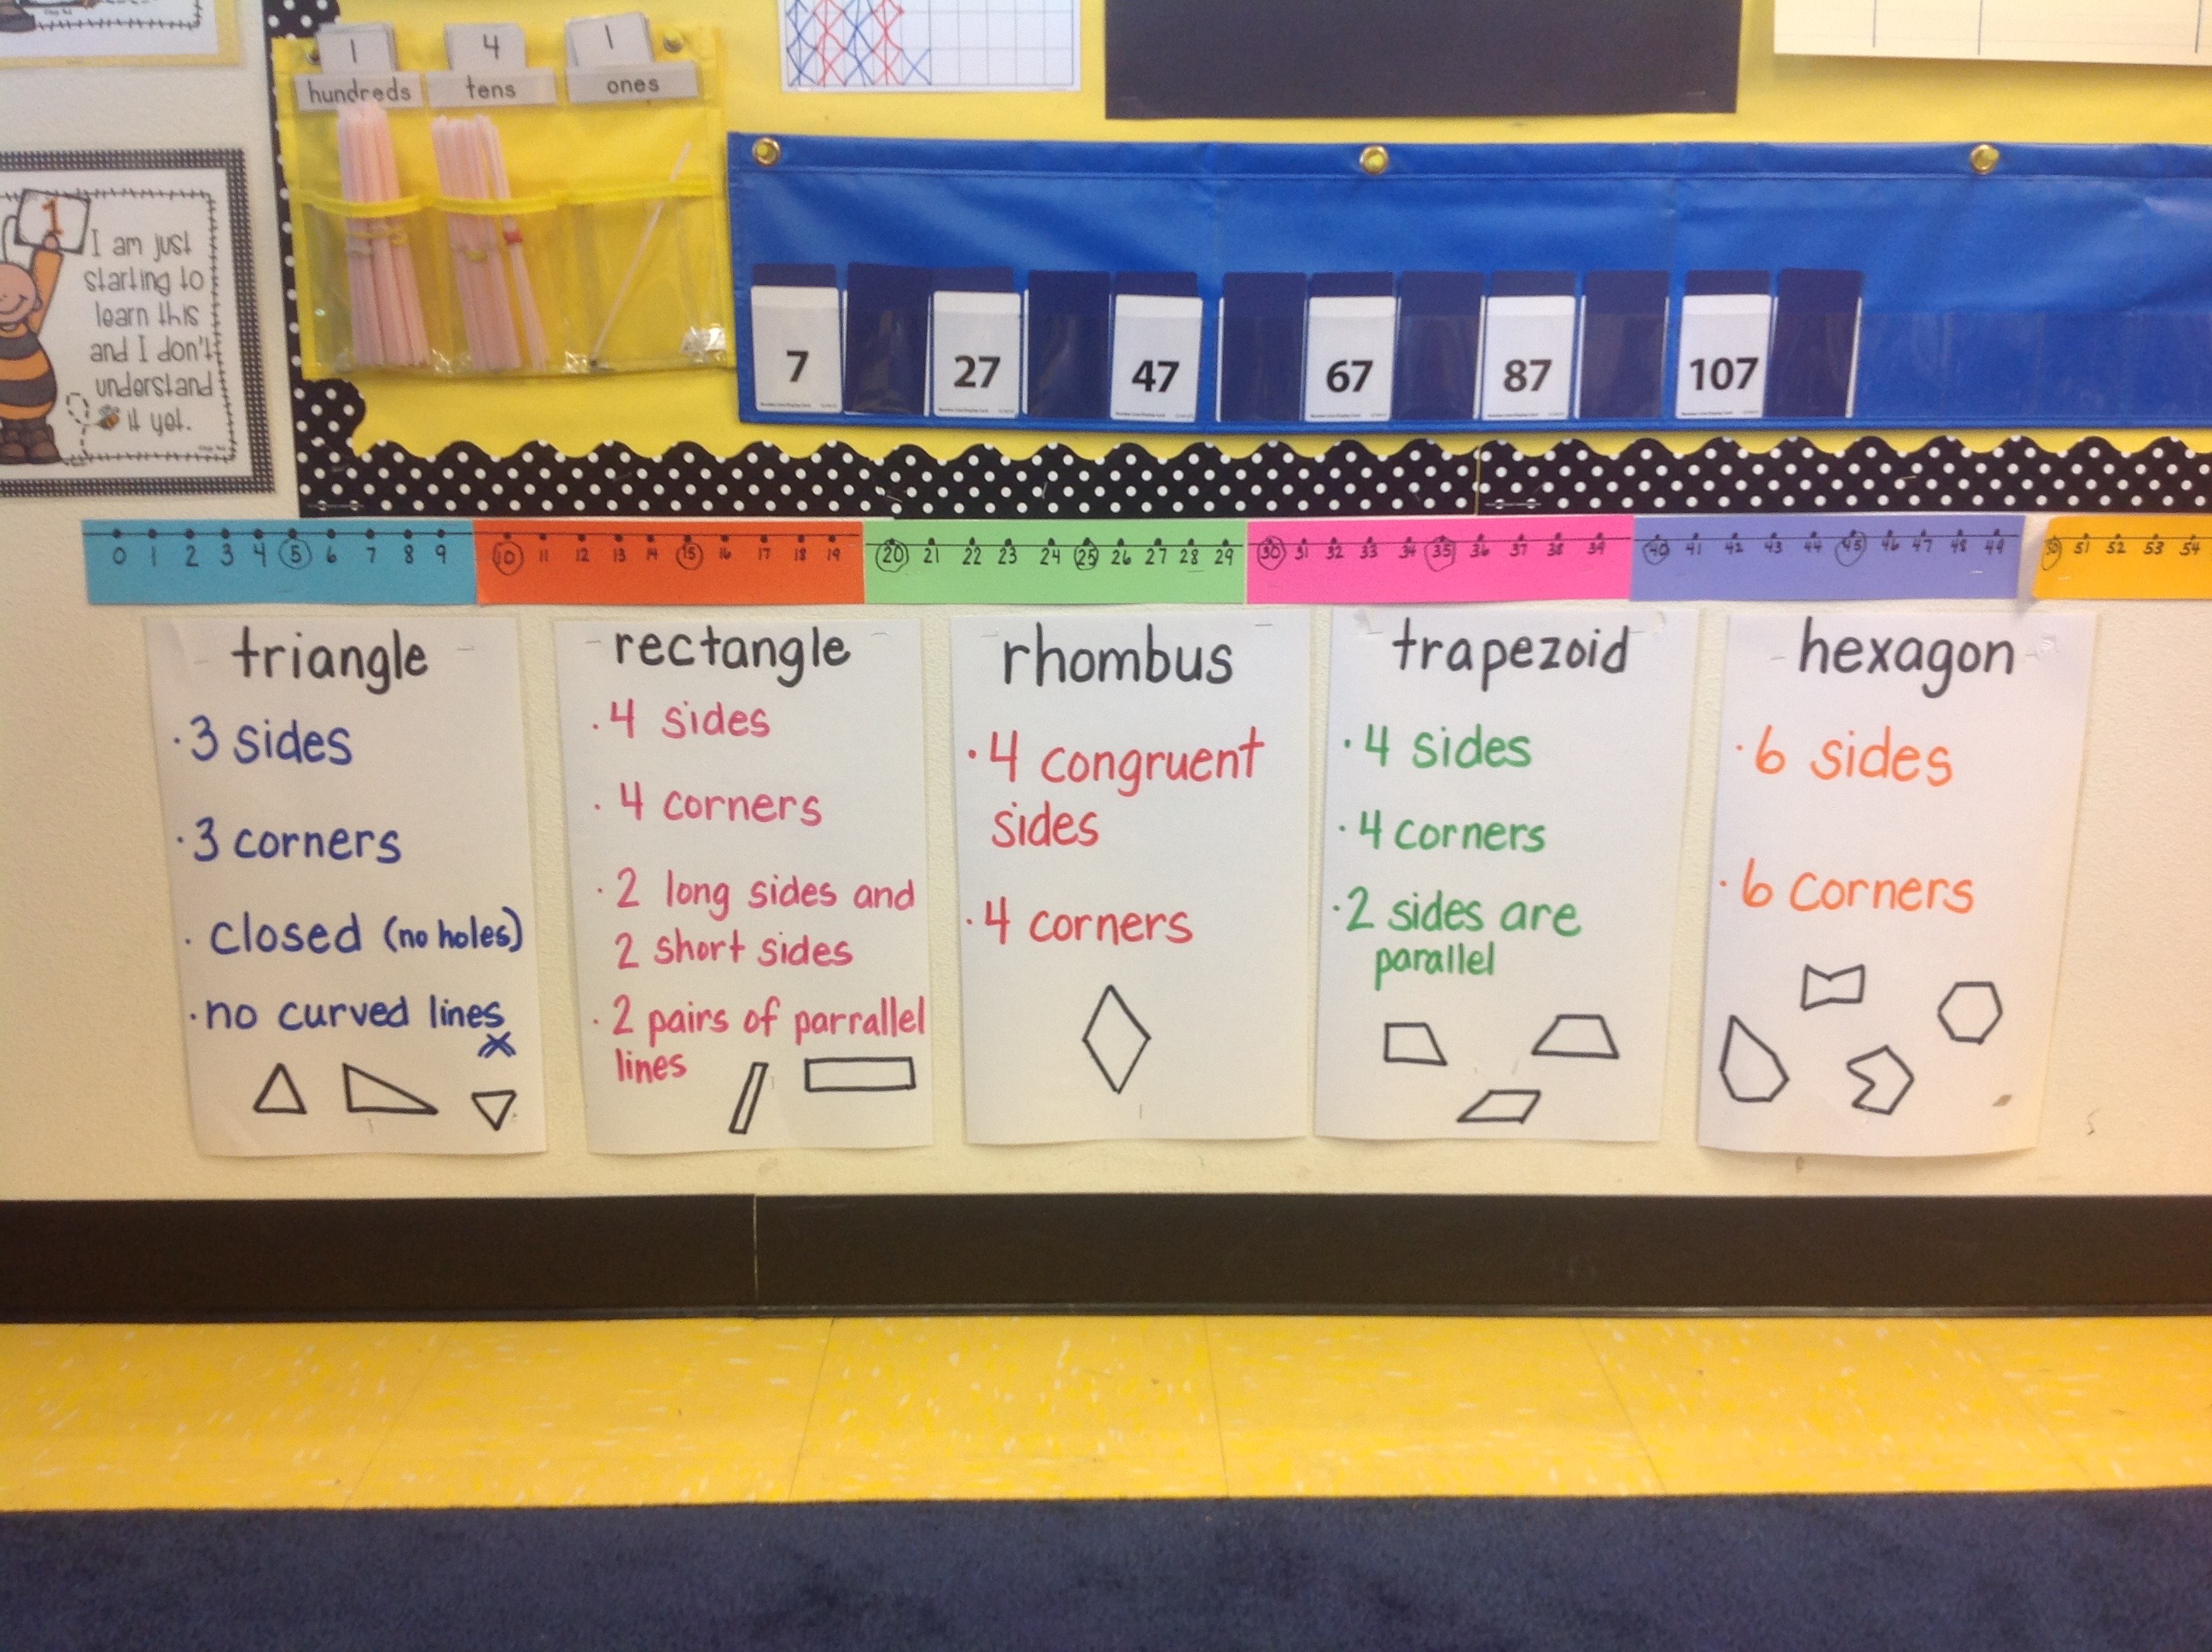 1 4 1
hundreds tens ones
1
I am just
starting to
learn this
and I don't
understand
it yet.
7 27 47 67 87 107
0 1 2 3 4 5 6 7 8 9 10 11 12 13 14 15 16 17 18 19 20 21 22 23 24 25 26 27 28 29 30 31 32 33 34 35 36 37 38 39 40 41 42 43 44 45 46 47 48 49 50 51 52 53 54
triangle
· 3 sides
· 3 corners
· closed (no holes)
· no curved lines
rectangle
· 4 sides
· 4 corners
· 2 long sides and
2 short sides
· 2 pairs of parrallel
lines
rhombus
· 4 congruent
sides
· 4 corners
trapezoid
· 4 sides
· 4 corners
· 2 sides are
parallel
hexagon
· 6 sides
· 6 corners